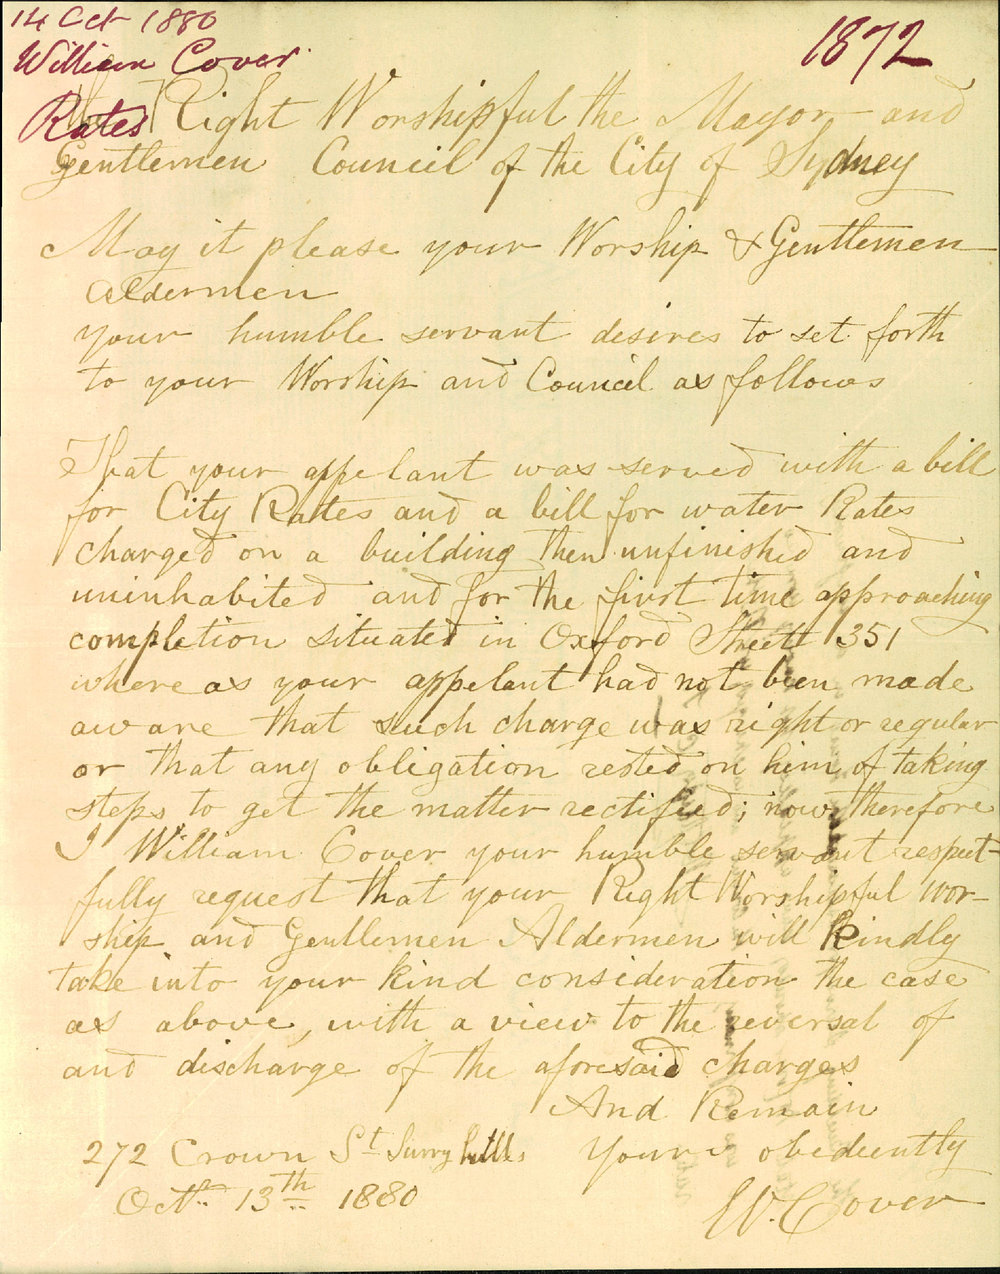 14 Oct 1880
William Cover
Rates
1872
Right Worshipful the Mayor and
Gentlemen Council of the City of Sydney
May it please your Worship & Gentlemen
Aldermen
your humble servant desires to set forth
to your Worship and Council as follows
That your appelant was served with a bill
for City Rates and a bill for water Rates
charged on a building then unfinished and
uninhabited and for the first time approaching
completion situated in Oxford Street 351
where as your appelant had not been made
aware that such charge was right or regular
or that any obligation rested on him of taking
steps to get the matter rectified; now therefore
I William Cover your humble servant respect-
fully request that your Right Worshipful Wor-
ship and Gentlemen Aldermen will kindly
take into your kind consideration the case
as above, with a view to the reversal of
and discharge of the aforesaid charges
And Remain
272 Crown St Surry hills Yours obediently
Octr. 13th 1880
W. Cover